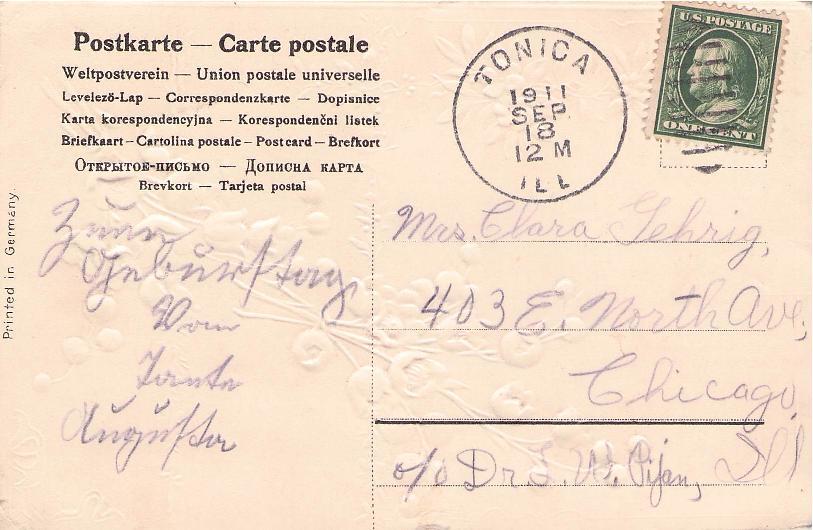 Postkarte — Carte postale
Weltpostverein — Union postale universelle
Levelező-Lap — Correspondenzkarte — Dopisnice
Karta korespondencyjna — Korespondenční listek
Briefkaart – Cartolina postale – Post card – Brefkort
Открытое-письмо — Дописна карта
Brevkort — Tarjeta postal
U.S. POSTAGE
ONE CENT
TONICA
1911
SEP
18
12 M
ILL
Printed in Germany.
Zum
Geburtstag
Von
Tante
Augusta
Mrs. Clara Gehrig,
403 E. North Ave,
Chicago,
c/o Dr W. Ill